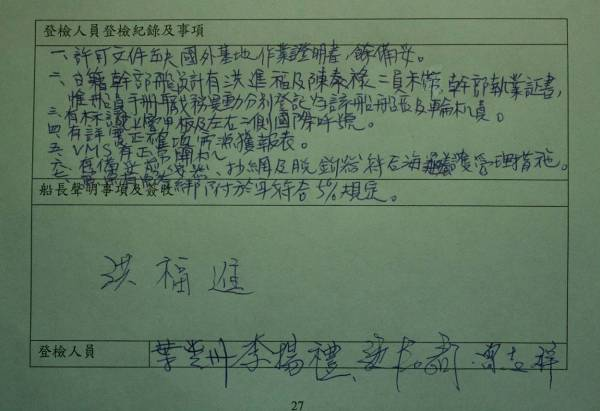 登檢人員登檢紀錄及事項
一、許可文件缺國外基地作業證明書,餘備妥。
二、台籍幹部船員計有洪進福及陳泰祿二員未作幹部執業証書,
惟船員手冊職務異動分別登記為該船船長及輪机員。
三、有标識於甲板及左右二側國際呼號。
四、有詳實正確填寫漁獲報表。
五、VMS有正常開机。
六、 、抄網及脫鉤 符合海 管理措施。
符合5%規定。
船長聲明事項及簽收
洪福進
登檢人員 葉 李揚禮
27